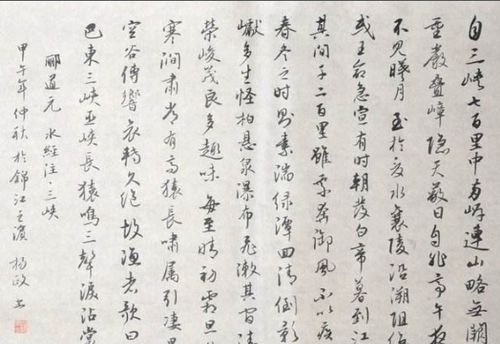 自三峡七百里中兩岸連山略無闕
重巖叠嶂隱天蔽日自非亭午夜
不見曦月至於夏水襄陵沿溯阻
或王命急宣有时朝發白帝暮到江
其间千二百里雖乘奔御風不以疾
春冬之时則素湍绿潭回清倒影
巘多生怪柏悬泉瀑布飛漱其间清
榮峻茂良多趣味每至晴初霜旦
寒涧肃常有高猿長嘯属引凄異
空谷傳響哀轉久绝故渔者歌曰
巴東三峡巫峡長猿鳴三聲淚沾裳
酈道元 水經注·三峡
甲午年仲秋於錦江之濱 楊政书